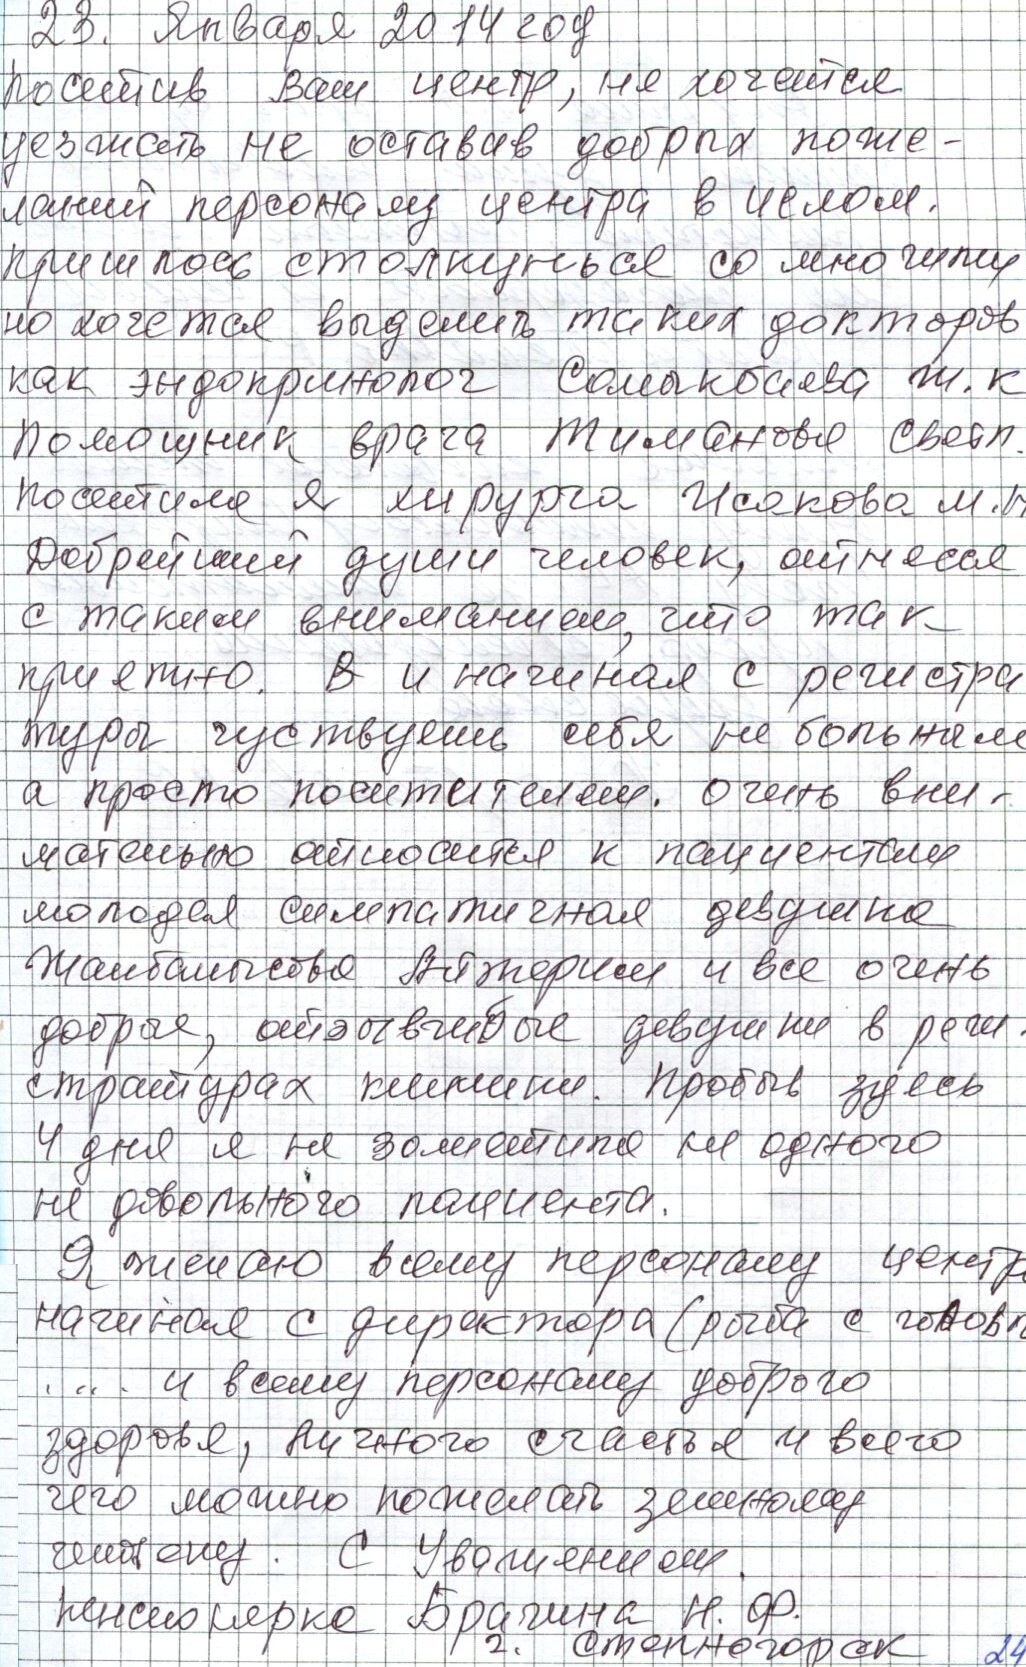 23. Января 2014 год
посетив Ваш центр, не хочется
уезжать не оставив добрых поже-
ланий персоналу центра в целом.
Пришлось столкнуться со многими
но хочется выделить таких докторов
как эндокринолог Сомыкбаева Ж.К
помощник врача Тиманова Светл.
посетила я хирурга Исакова М.
Добрейший души человек, отнесся
с таким вниманием, что так
приятно. В и начиная с регистра
туры чуствуешь себя не больным
а просто посетителем. Очень вни-
мательно относится к пациентам
молодая симпатичная девушка
Жанбалысова Айжерим и все очень
добрые, отзывчивые девушки в реги-
стратурах клиники. Пробыв здесь
4 дня я не заметила не одного
не довольного пациента.
Я желаю всему персоналу центр
начиная с директора (рыба с головы
.... и всему персоналу доброго
здоровья, личного счастья и всего
чего можно пожелать земному
человеку. С Уважением
пенсионерка Брагина Н.Ф.
г. Степногорск 24